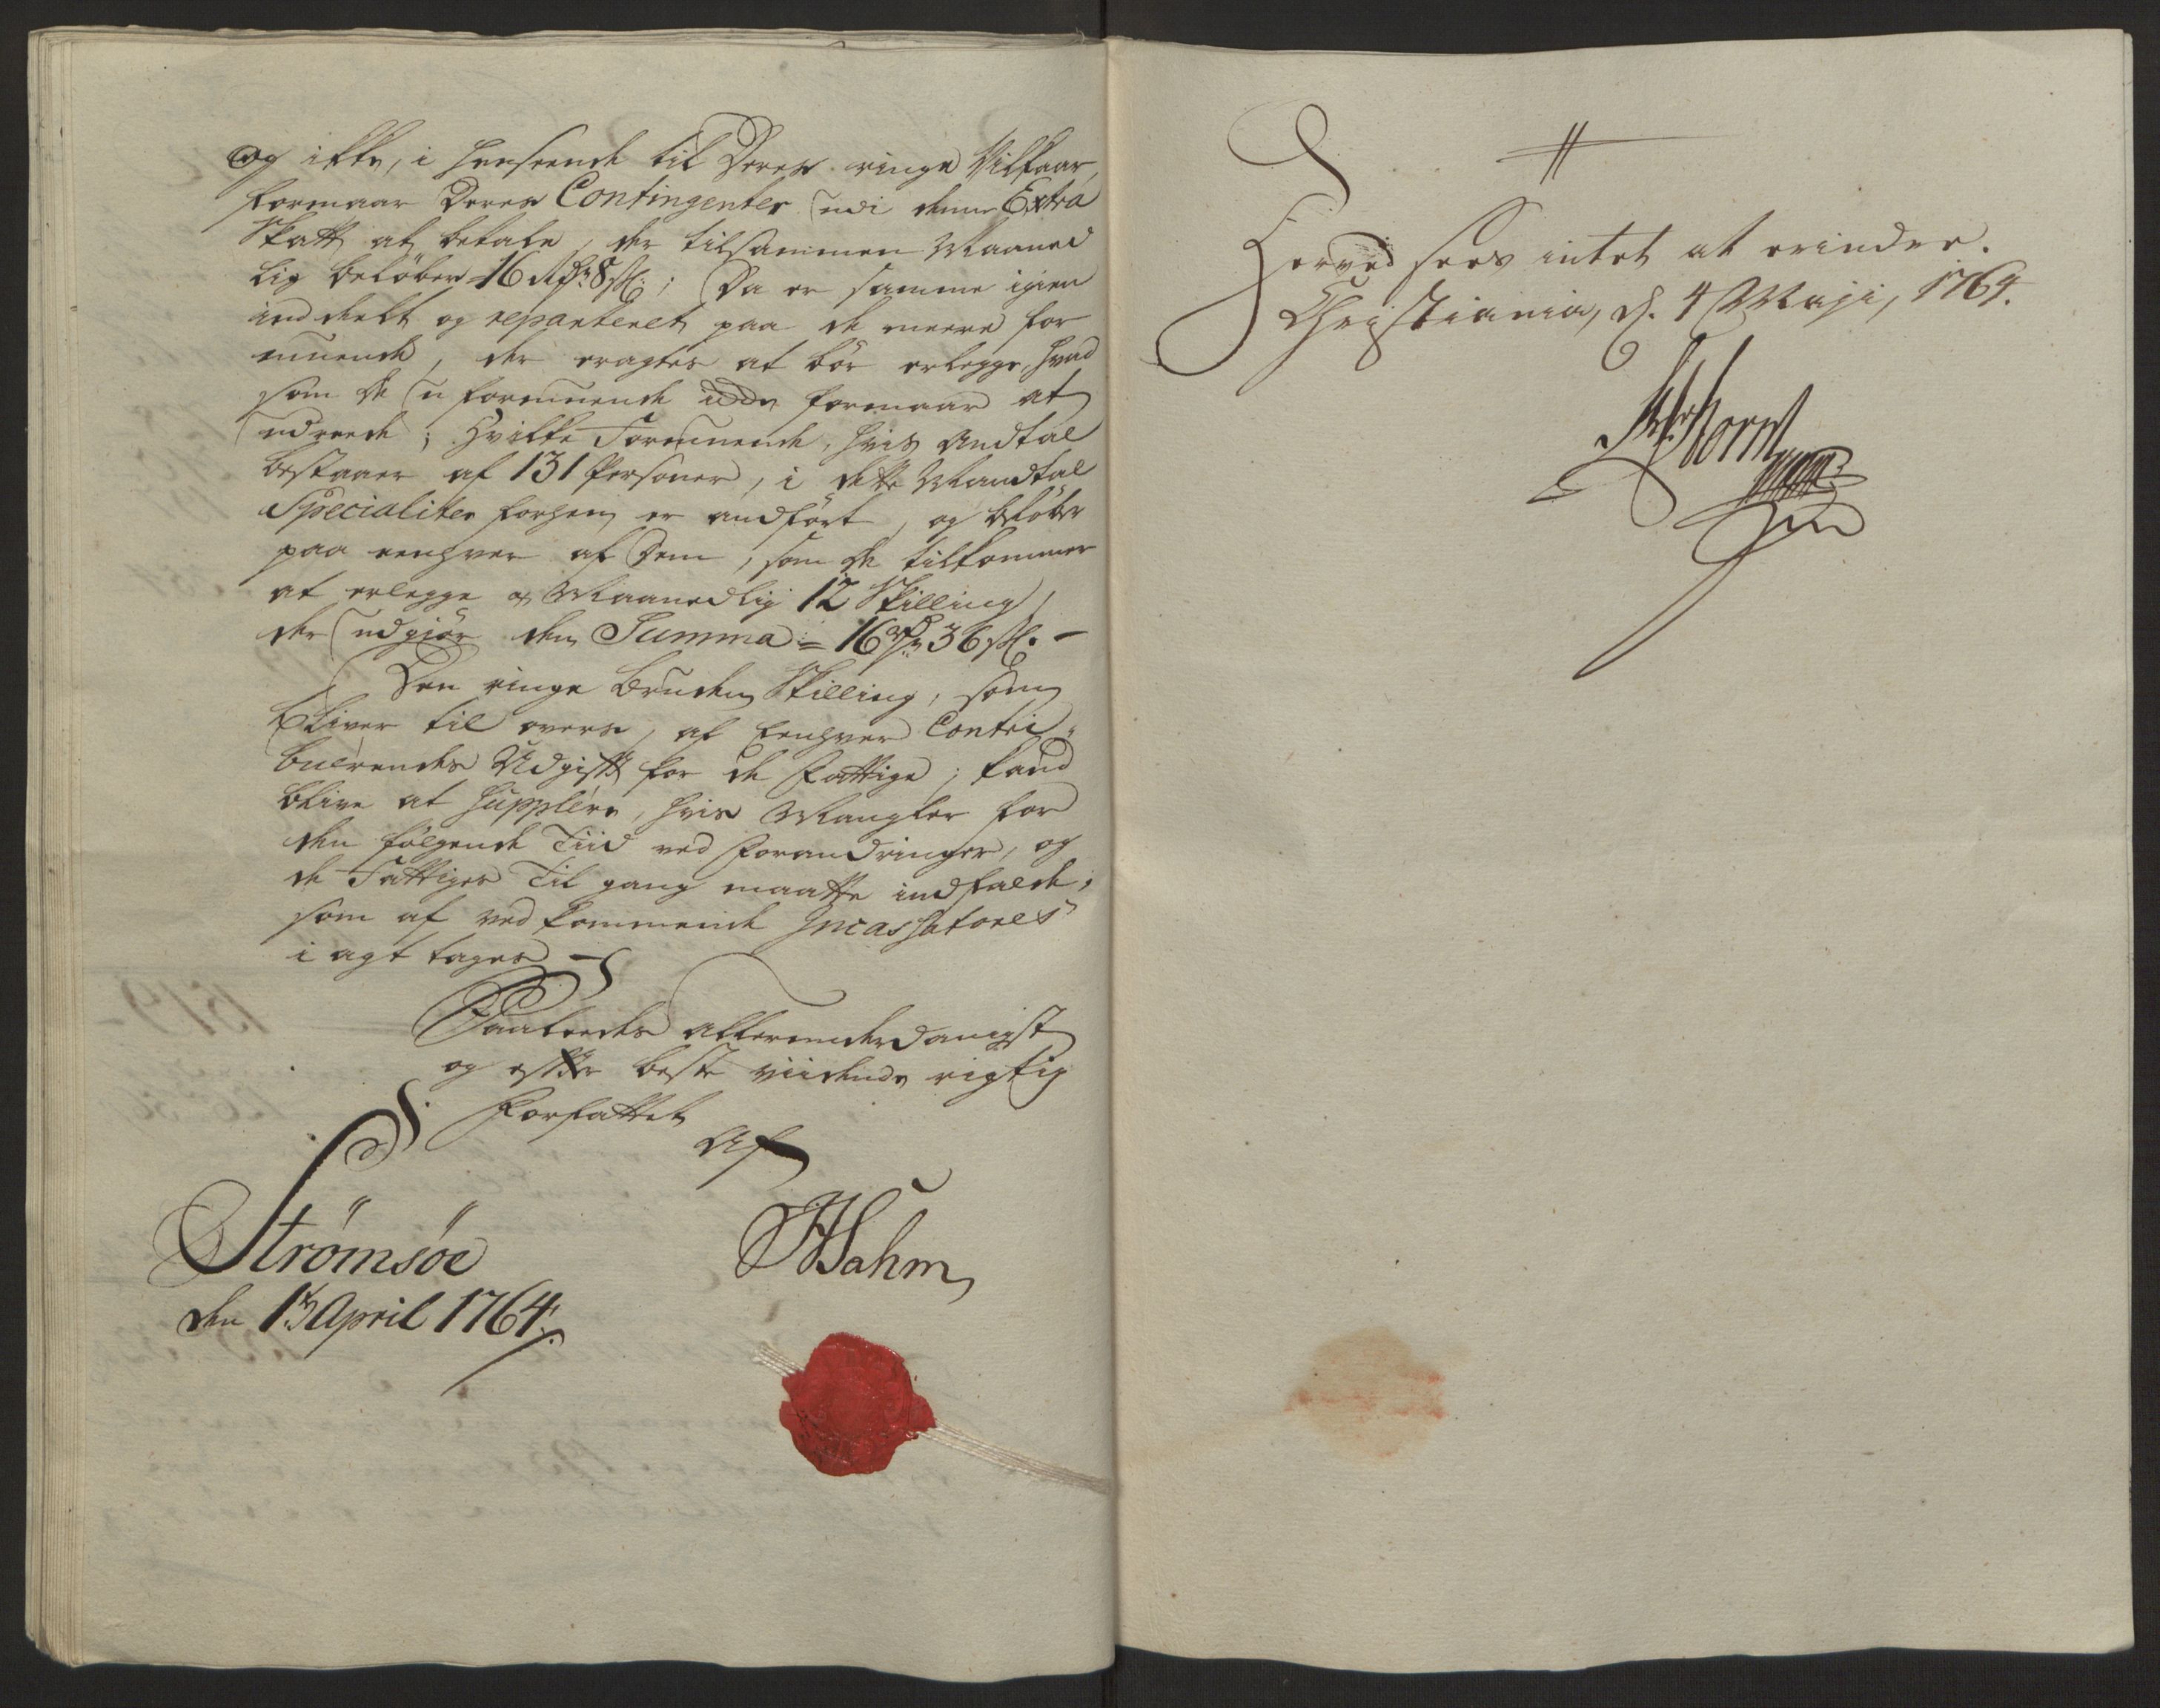 og ikke, i henseende til Deres ringe Vilkaar,
formaar Deres Contingenter udi denne Extra
Skatt at betale, der tilsammen Maaned
lig beløber 16 Rdr 8 sk: ; Da er samme igien
inddeelt og reparteret paa de meere for
muende, der eragtes at bør erlegge, hvad
som de uformuende icke formaar at
udreede; Hvilke Formuende, hvis Andtal
bestaaer af 131 Personer, i dette Mandtal
Specialiter forhen er andført, og beløber
paa eenhver af Dem, som de tilkommer
at erlegge Maanedlig 12 Skilling,
der udgiør den Summa = 16 Rdr 36 sk. -
Den ringe bruden Skilling, som
bliver til overs, af Eenhver Contri-
buerendes Udgift for de Fattige; kand
blive at Supplere, hvis Mangler for
den følgende Tiid ved Forandringer, og
de Fattiges Til gang maatte indfalde;
som af ved kommende Incassatores
i agt tages
Saaledes allerunderdanigst
og efter beste viidende rigtig
Forfattet
Af
Strömsöe
den 1t April 1764.
Sahm
Herved sees intet at erindre.
Christiania, d. 4 Maji, 1764.
Storm